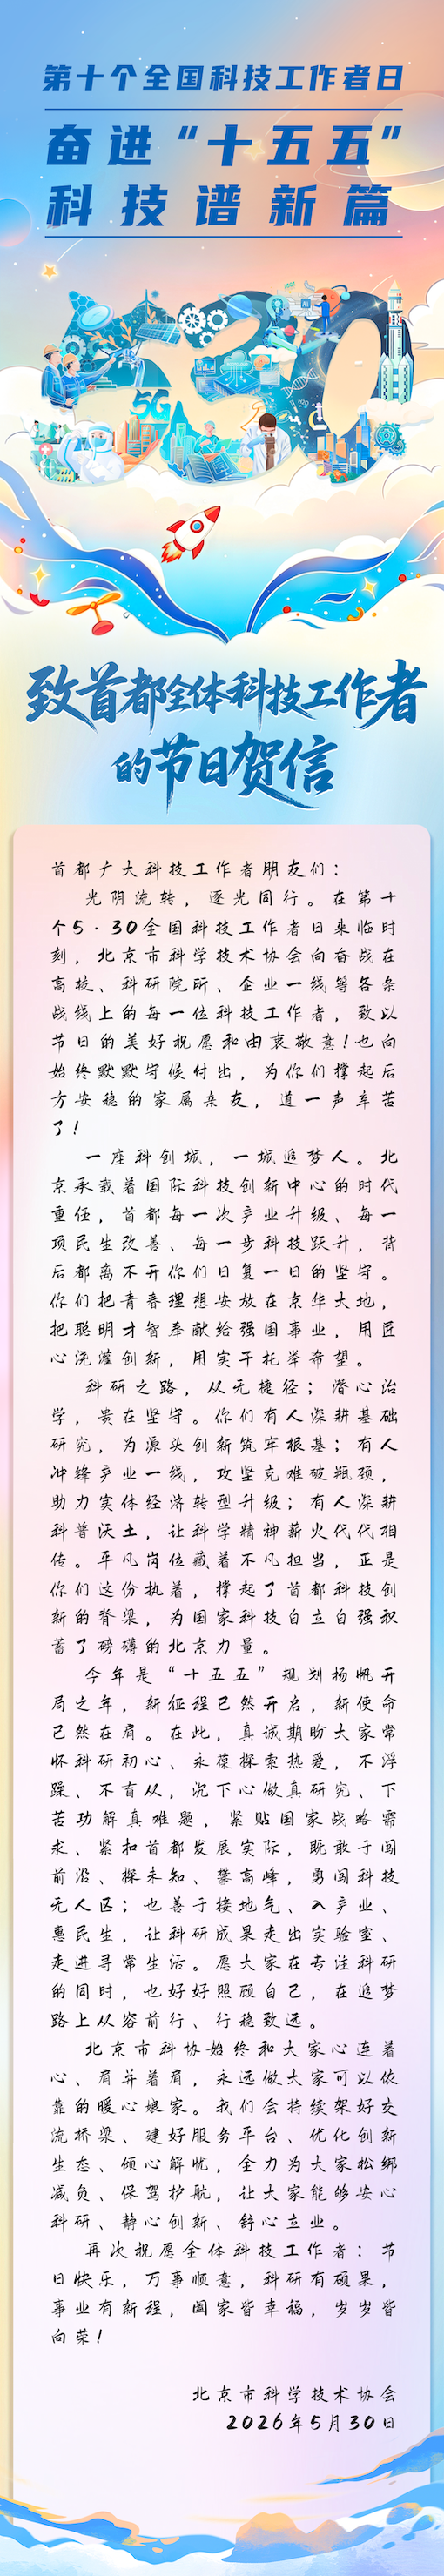 第十个全国科技工作者日
奋进“十五五”
科技谱新篇
5G
AI
致首都全体科技工作者
的节日贺信
首都广大科技工作者朋友们：
光阴流转，逐光同行。在第十
个5·30全国科技工作者日来临时
刻，北京市科学技术协会向奋战在
高校、科研院所、企业一线等各条
战线上的每一位科技工作者，致以
节日的美好祝愿和由衷敬意！也向
始终默默守候付出，为你们撑起后
方安稳的家属亲友，道一声辛苦
了！
一座科创城，一城追梦人。北
京承载着国际科技创新中心的时代
重任，首都每一次产业升级、每一
项民生改善、每一步科技跃升，背
后都离不开你们日复一日的坚守。
你们把青春理想安放在京华大地，
把聪明才智奉献给强国事业，用匠
心浇灌创新，用实干托举希望。
科研之路，从无捷径；潜心治
学，贵在坚守。你们有人深耕基础
研究，为源头创新筑牢根基；有人
冲锋产业一线，攻坚克难破瓶颈，
助力实体经济转型升级；有人深耕
科普沃土，让科学精神薪火代代相
传。平凡岗位藏着不凡担当，正是
你们这份执着，撑起了首都科技创
新的脊梁，为国家科技自立自强积
蓄了磅礴的北京力量。
今年是“十五五”规划扬帆开
局之年，新征程已然开启，新使命
已然在肩。在此，真诚期盼大家常
怀科研初心、永葆探索热爱，不浮
躁、不盲从，沉下心做真研究、下
苦功解真难题，紧贴国家战略需
求、紧扣首都发展实际，既敢于闯
前沿、探未知、攀高峰，勇闯科技
无人区；也善于接地气、入产业、
惠民生，让科研成果走出实验室、
走进寻常生活。愿大家在专注科研
的同时，也好好照顾自己，在追梦
路上从容前行、行稳致远。
北京市科协始终和大家心连着
心、肩并着肩，永远做大家可以依
靠的暖心娘家。我们会持续架好交
流桥梁、建好服务平台、优化创新
生态、倾心解忧，全力为大家松绑
减负、保驾护航，让大家能够安心
科研、静心创新、舒心立业。
再次祝愿全体科技工作者：节
日快乐，万事顺意，科研有硕果，
事业有新程，阖家皆幸福，岁岁皆
向荣！
北京市科学技术协会
2026年5月30日